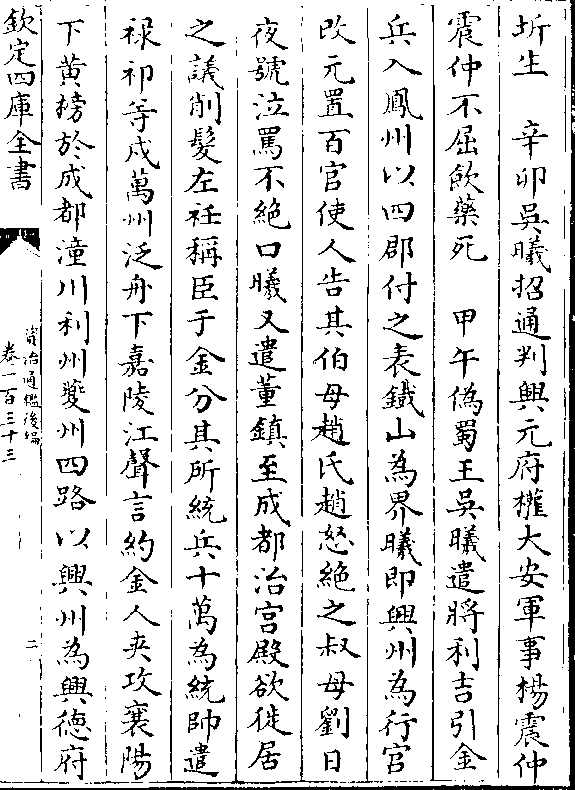 圻生　辛卯吳曦招通判興元府權大安軍事楊震仲
震仲不屈飲藥死　甲午偽蜀王吳曦遣將利吉引金
兵入鳳州以四郡付之表鐵山為界曦即興州為行宫
改元置百官使人告其伯母趙氏趙怒絶之叔母劉日
夜號泣罵不絶口曦又遣董鎮至成都治宫殿欲徙居
之議削髮左衽稱臣于金分其所統兵十萬為統帥遣
禄祁等戍萬州泛舟下嘉陵江聲言約金人夾攻襄陽
下黄榜於成都潼川利州夔州四路以興州為興德府
欽定四庫全書
資治通鑑後編
卷一百三十三
二